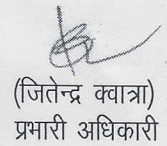 (जितेन्द्र क्वात्रा)
प्रभारी अधिकारी